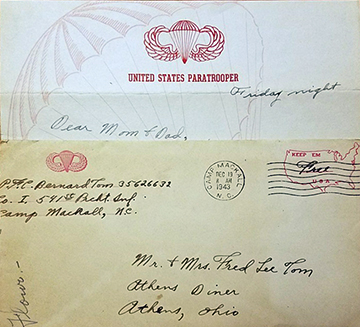 UNITED STATES PARATROOPER
Friday night
Dear Mom & Dad,
Pvt. Bernard Tom 35626632
Co. I, 541st Prcht. Inf.
Camp Mackall, N.C.
CAMP MACKALL
DEC 19
8 AM
1943
N.C.
KEEP EM
Free
U.S.A.
Mr. & Mrs. Fred Lee Tom
Athens Diner
Athens, Ohio